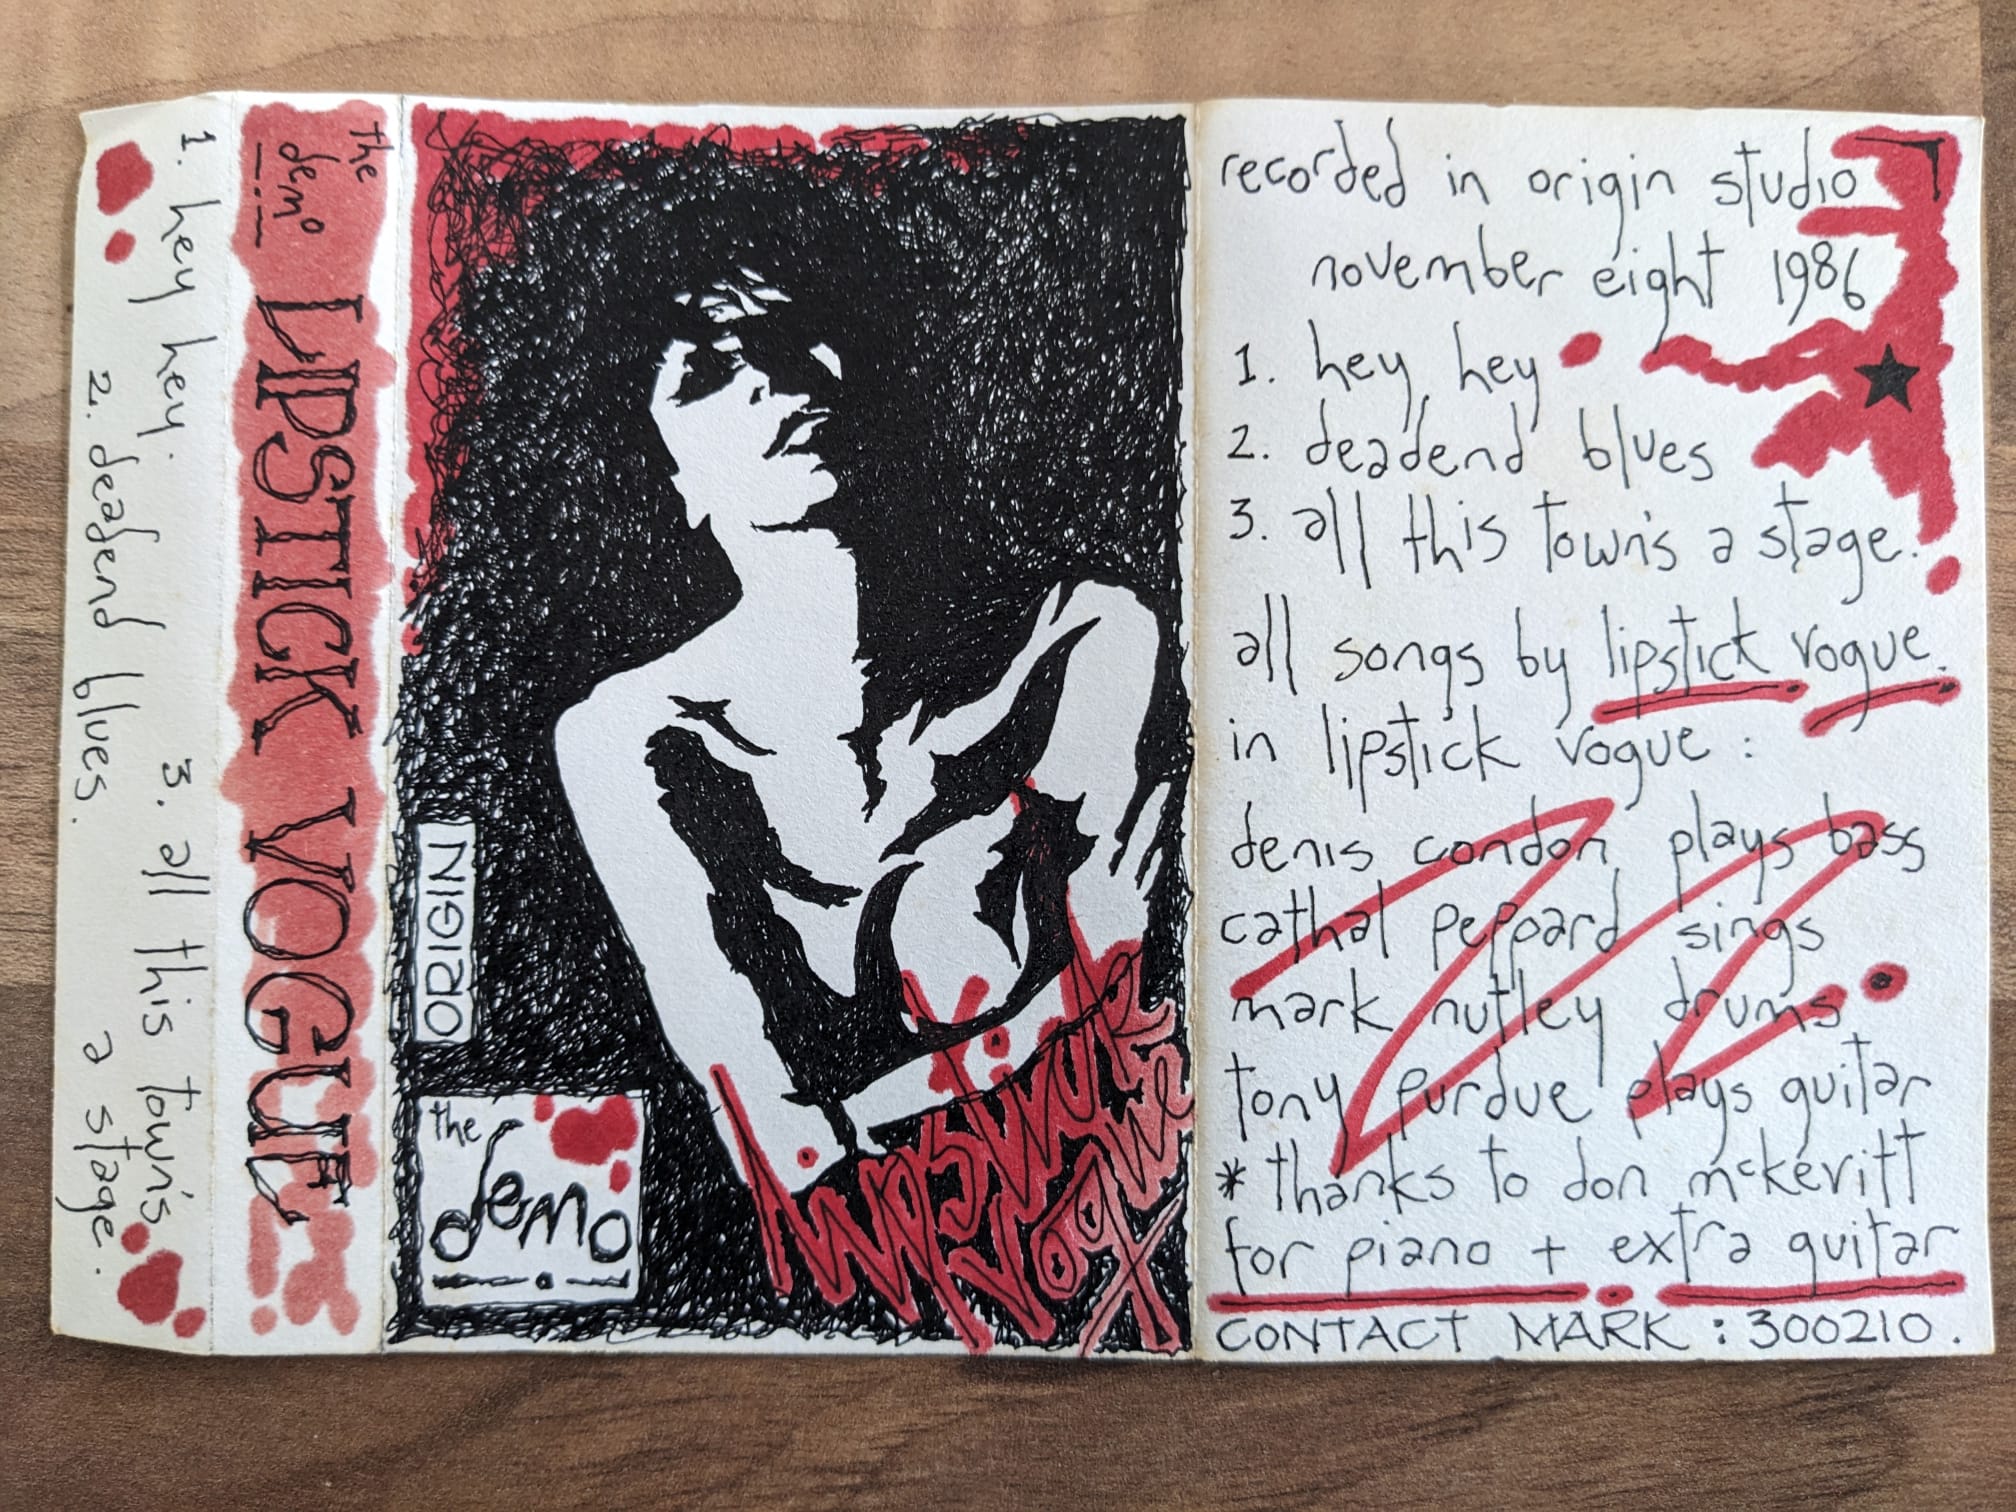 1. hey hey.
2. deadend blues.
3. all this town's
a stage.
the
demo
LIPSTICK VOGUE
ORIGIN
the
demo
Lipstick
Vogue
recorded in origin studio
november eight 1986
1. hey hey
2. deadend blues
3. all this town's a stage.
all songs by lipstick vogue.
in lipstick vogue :
denis condon plays bass
cathal peppard sings
mark nutley drums
tony purdue plays guitar
* thanks to don mckevitt
for piano + extra guitar
CONTACT MARK : 300210.